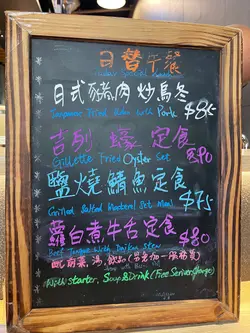 日替午餐
日式豬肉炒烏冬
Japanese Fried Udon with Pork $85
吉列蠔定食
Gillette Fried Oyster Set $90
鹽燒鯖魚定食
Grilled Salted Mackerel Set Meal $75
蘿白煮牛舌定食 $80
Beef Tongue with Daikon Stew
配前菜,湯,飲品(另免加一服務費)
With Starter, Soup & Drink (Free Service Charge)